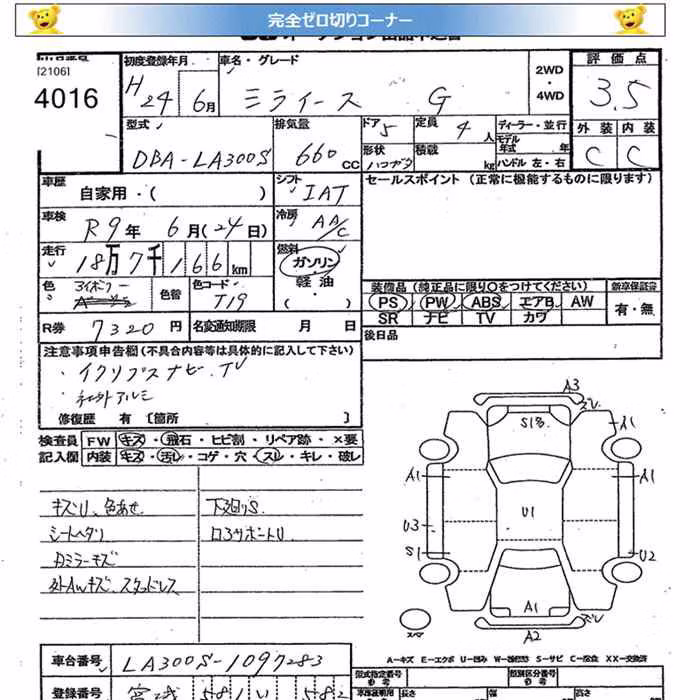 完全ゼロ切りコーナー
[2106]
4016
初度登録年月
H 24 6月
車名・グレード
ミライース G
2WD
・
4WD
評価点
3.5
型式
DBA-LA300S
排気量
660 CC
ドア 5
形状
定員 4 人
積載 kg
ディーラー・並行
モデル
年式 年
ハンドル 左・右
外装 内装
C C
車歴
自家用・( )
シフト
IAT
セールスポイント (正常に機能するものに限ります)
車検
R9年 6月(24日)
冷房
AA/C
走行
18万7千166km
燃料
ガソリン
軽油
・( )
色
アイボリー
色替
色コード
T19
装備品 (純正品に限り○をつけてください)
新車保証書
PS PW ABS エアB AW
SR ナビ TV カワ
有・無
R券 7320円
名変通知期限 月 日
後日品
注意事項申告欄(不具合内容等は具体的に記入して下さい)
・イクリプスナビ.TV
・社外アルミ
修復歴 有 〔箇所 〕
検査員 FW キズ・飛石・ヒビ割・リペア跡・×要
記入欄 内装 キズ・汚レ・コゲ・穴・スレ・キレ・破レ
キズU、色あせ 下廻りS
シートヘタリ コアサポートU
カミラーキズ
外AWキズ、スタッドレス
A3
ズレ
S18
A1
A1
A1
U3
U1
S1
U2
A1
ズレ
A2
スペア
A-キズ E-エクボ U-凹み W-補修跡 S-サビ C-腐食 XX-交換済
車台番号 LA300S-1097283
登録番号 宮城 581 い 582
型式指定番号
参考
類別区分番号
参考
長さ